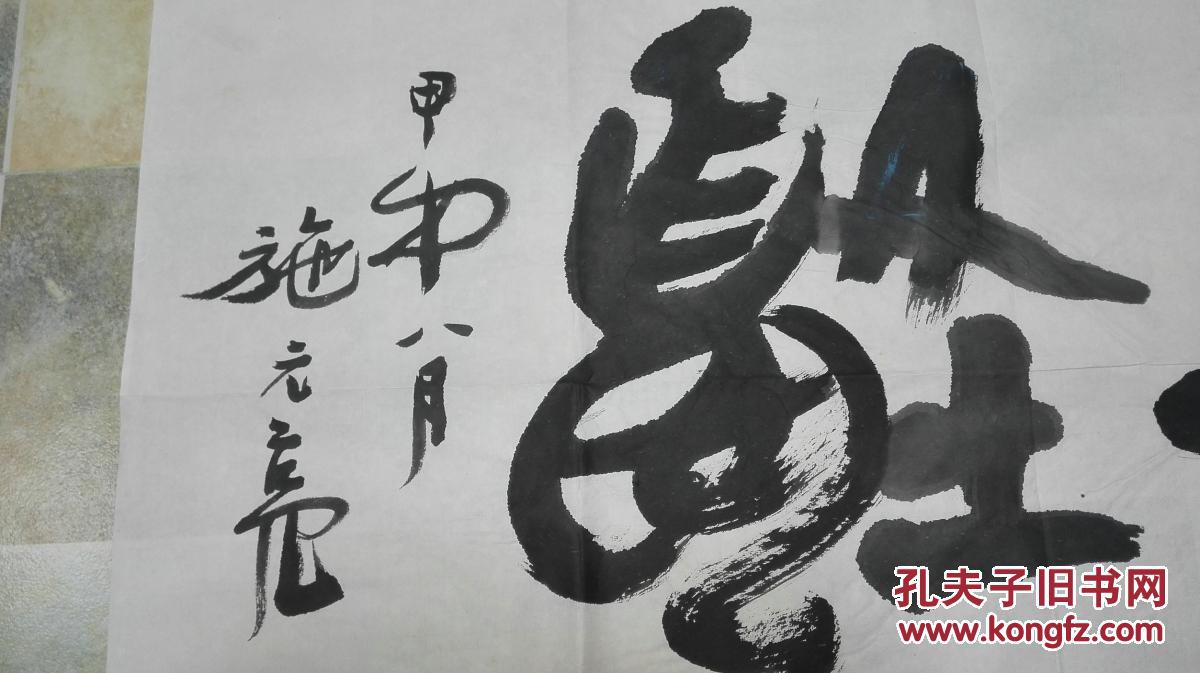 甲午八月
施元亮
孔夫子旧书网
www.kongfz.com